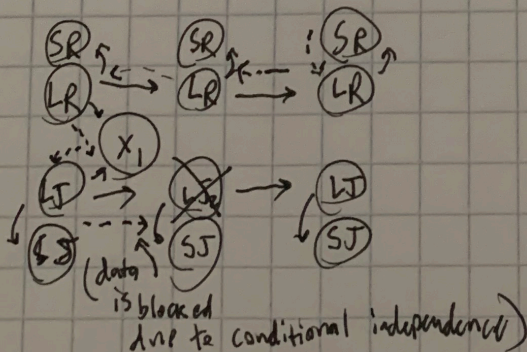 SR SR SR
LR LR LR
X1
LJ LJ2 LJ
SJ SJ SJ
(data
is blocked
due to conditional independence)